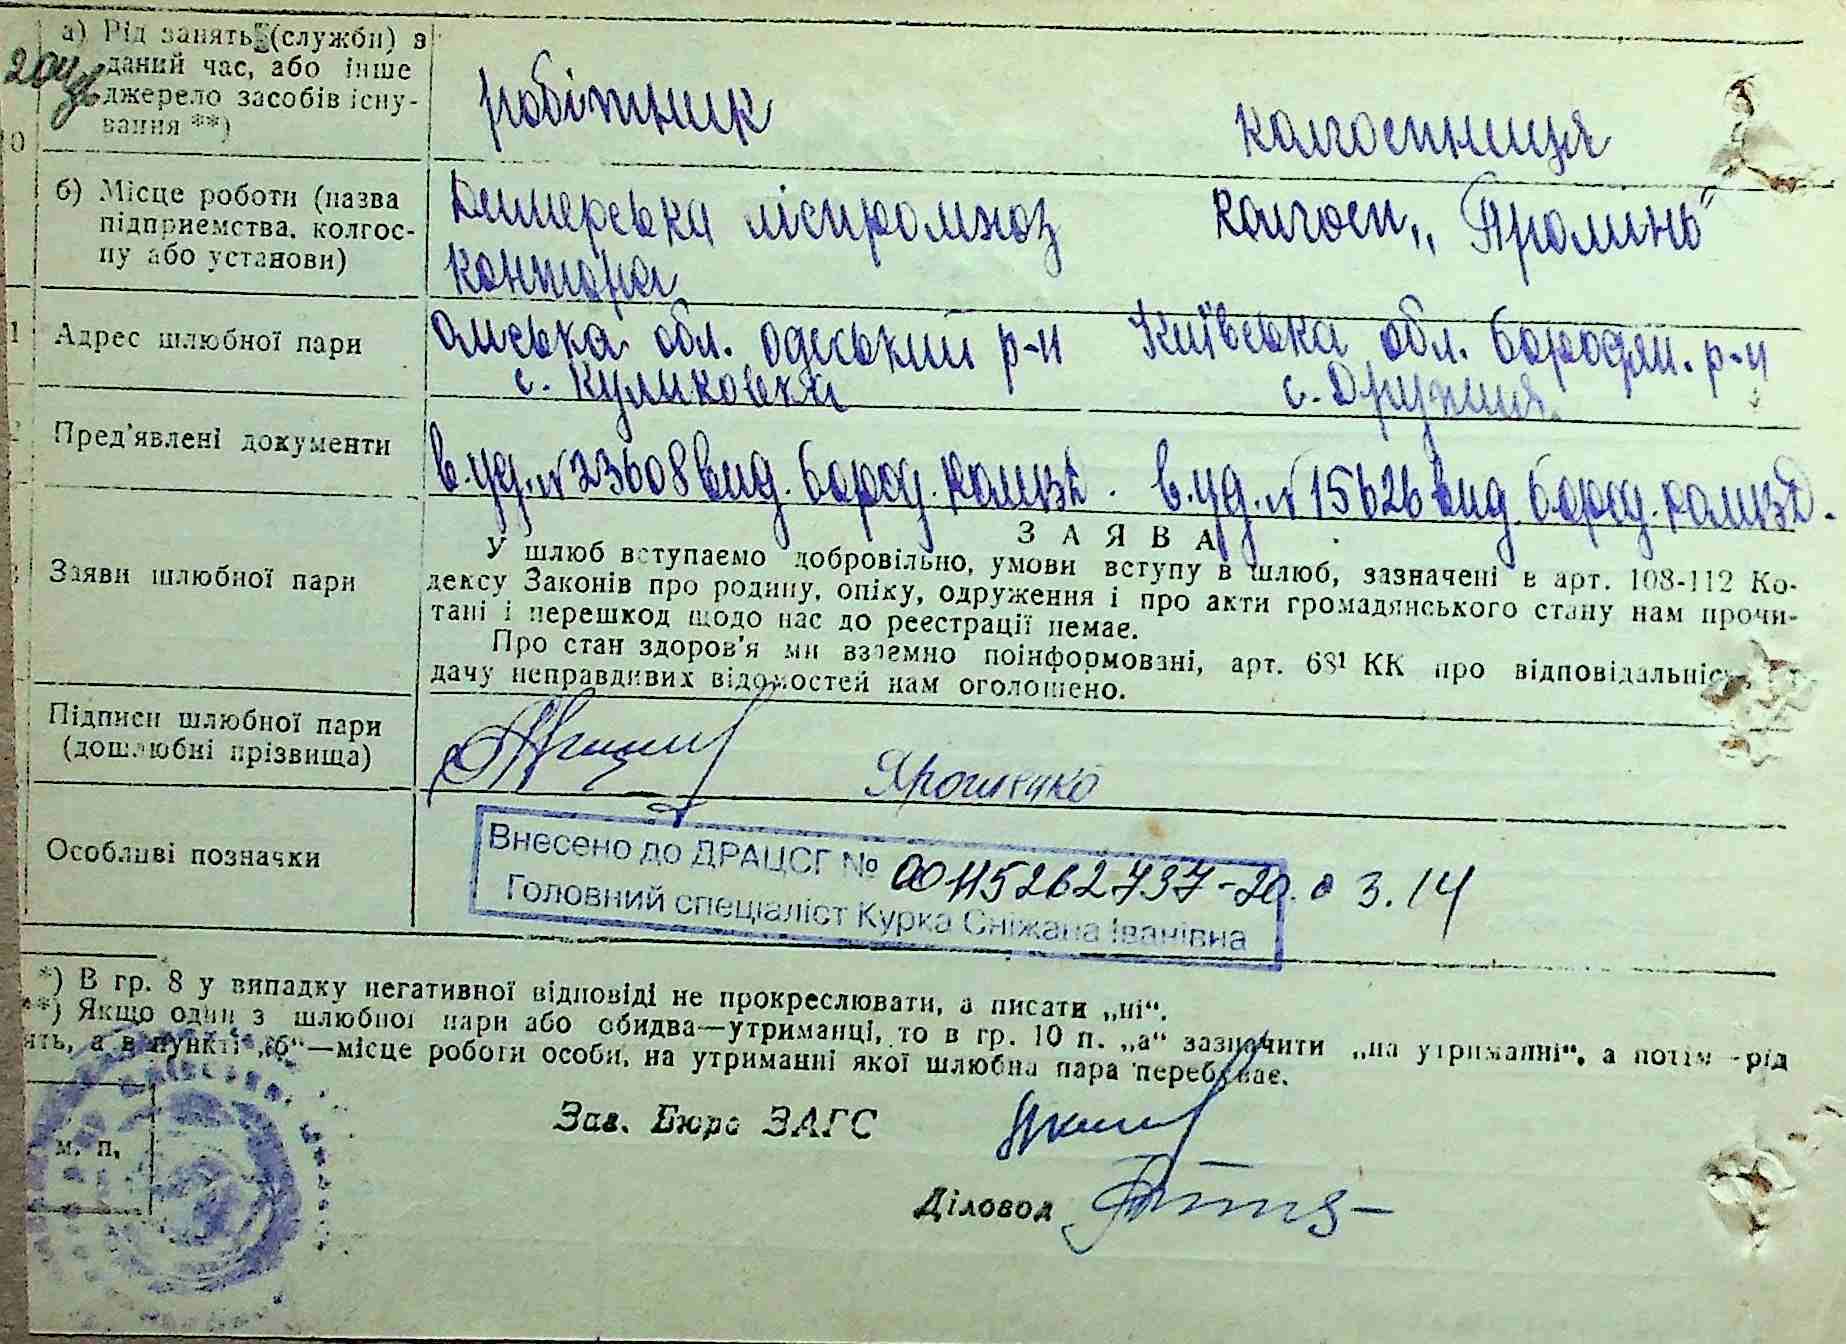 а) Рід занять (служби) в
даний час, або інше
джерело засобів існу-
вання **)
робітник
колгоспниця
10
б) Місце роботи (назва
підприємства, колгос-
пу або установи)
Димерська ліспромхоз
контора
колгосп „Промінь"
1
Адрес шлюбної пари
Омська обл. одеський р-н
с. Куликовка
Київська обл. Бородян. р-н
с. Дружня
2
Пред'явлені документи
в.уд. № 23608 вид. Бород.
в.уд. № 15626 вид. Бород.
З А Я В А
3
Заяви шлюбної пари
У шлюб вступаємо добровільно, умови вступу в шлюб, зазначені в арт. 108-112 Ко-
дексу Законів про родину, опіку, одруження і про акти громадянського стану нам прочи-
тані і перешкод щодо нас до реєстрації немає.
Про стан здоров'я ми взаємно поінформовані, арт. 68¹ КК про відповідальніс
дачу неправдивих відомостей нам оголошено.
Підписи шлюбної пари
(дошлюбні прізвища)
Ярошенко
Особливі позначки
Внесено до ДРАЦСГ № 00115262737-20.03.14
Головний спеціаліст Курка Сніжана Іванівна
*) В гр. 8 у випадку негативної відповіді не прокреслювати, а писати „ні“.
**) Якщо один з шлюбної пари або обидва—утриманці, то в гр. 10 п. „а“ зазначити „на утриманні“, а потім -рід
ять, а в пункті „б“—місце роботи особи, на утриманні якої шлюбна пара перебуває.
м. п.
Зав. Бюро ЗАГС
Діловод